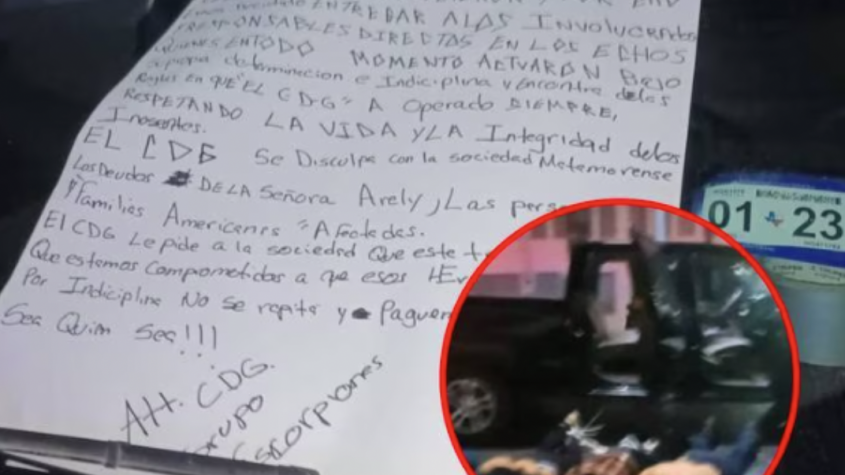 ENTREGAR A LOS INVOLUCRADOS
RESPONSABLES DIRECTOS EN LOS ECHOS
QUIENES EN TODO MOMENTO ACTUARON BAJO
determinacion e Indiciplina y encontra de las
Reglas en QUE "EL CDG" A Operado SIEMPRE,
RESPETANDO LA VIDA Y LA Integridad de los
Inosentes.
EL CDG Se Disculpa con la sociedad Matamorense
Los Deudos DE LA SEÑORA Arely, y Las
Familias Americanas "Afectadas.
El CDG Le pide a la sociedad Que este
Que estamos Comprometidos a que esos
Por Indiciplina No se repita y Paguen
Sea Quim Sea!!!
Att. CDG.
Grupo
Escorpiones
01 23